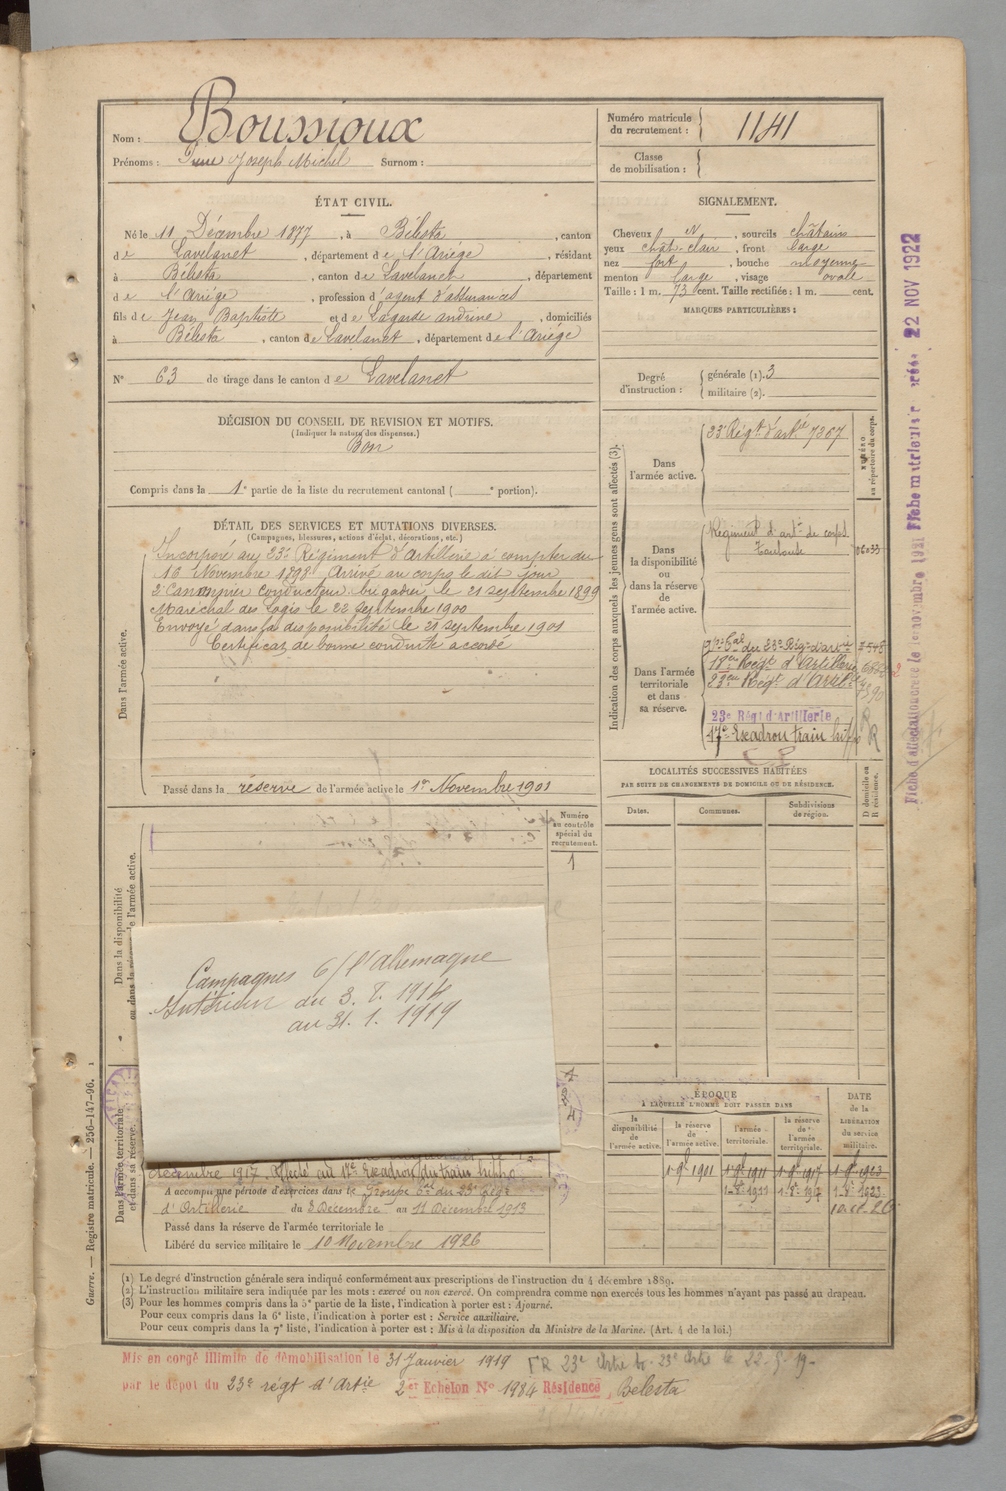 Nom : Boussioux
Prénoms : Pierre Joseph Michel Surnom :
Numéro matricule du recrutement : 1141
Classe de mobilisation :
ÉTAT CIVIL.
Né le 11 Décembre 1877, à Bélesta, canton
de Lavelanet, département de l'Ariége, résidant
à Bélesta, canton de Lavelanet, département
de l'Ariége, profession d'agent d'assurances
fils de Jean Baptiste et de Lagarde andrine, domiciliés
à Bélesta, canton de Lavelanet, département de l'Ariége
N° 63 de tirage dans le canton de Lavelanet
SIGNALEMENT.
Cheveux N, sourcils châtains
yeux chât-clair, front large
nez fort, bouche moyenne
menton large, visage ovale
Taille : 1 m. 73 cent. Taille rectifiée : 1 m. cent.
MARQUES PARTICULIÈRES :
Degré d'instruction : générale (1). 3
militaire (2).
DÉCISION DU CONSEIL DE REVISION ET MOTIFS.
(Indiquer la nature des dispenses.)
Bon
Compris dans la 1e partie de la liste du recrutement cantonal ( e portion).
DÉTAIL DES SERVICES ET MUTATIONS DIVERSES.
(Campagnes, blessures, actions d'éclat, décorations, etc.)
Dans l'armée active.
Incorporé au 23e Régiment d'Artillerie à compter du
16 Novembre 1898. Arrivé au corps le dit jour
2e Canonnier conducteur brigadier le 21 septembre 1899
Maréchal des Logis le 22 septembre 1900
Envoyé dans la disponibilité le 21 septembre 1901
Certificat de bonne conduite accordé
Passé dans la réserve de l'armée active le 1er Novembre 1901
Indication des corps auxquels les jeunes gens sont affectés (3).
NUMÉRO au répertoire du corps.
Dans l'armée active.
23e Régt d'artie 7367
Dans la disponibilité ou dans la réserve de l'armée active.
Régiment d'artie de corps
Toulouse
Dans l'armée territoriale et dans sa réserve.
du 23e Rég d'artie
18eme Régt d'Artillerie
23eme Régt d'Artie
23e Régt d'Artillerie
17e Escadron train hippo
LOCALITÉS SUCCESSIVES HABITÉES
PAR SUITE DE CHANGEMENTS DE DOMICILE OU DE RÉSIDENCE.
Dates. Communes. Subdivisions de région. D domicile ou R résidence.
Numéro au contrôle spécial du recrutement.
1
Dans la disponibilité ou dans la réserve de l'armée active.
Campagnes C/ l'allemagne
Intérieur du 3. 8. 1914
au 31. 1. 1919
Dans l'armée territoriale et dans sa réserve.
décembre 1917. Affecté au 17e Escadron du train hippo
A accompli une période d'exercices dans le Groupe du 23e Régt
d'Artillerie du 2 Décembre au 11 Décembre 1913
Passé dans la réserve de l'armée territoriale le
Libéré du service militaire le 10 Novembre 1926
ÉPOQUE
A LAQUELLE L'HOMME DOIT PASSER DANS
la disponibilité de l'armée active. la réserve de l'armée active. l'armée territoriale. la réserve de l'armée territoriale.
DATE de la LIBÉRATION du service militaire.
(1) Le degré d'instruction générale sera indiqué conformément aux prescriptions de l'instruction du 4 décembre 1889.
(2) L'instruction militaire sera indiquée par les mots : exercé ou non exercé. On comprendra comme non exercés tous les hommes n'ayant pas passé au drapeau.
(3) Pour les hommes compris dans la 5e partie de la liste, l'indication à porter est : Ajourné.
Pour ceux compris dans la 6e liste, l'indication à porter est : Service auxiliaire.
Pour ceux compris dans la 7e liste, l'indication à porter est : Mis à la disposition du Ministre de la Marine. (Art. 4 de la loi.)
Mis en congé illimité de démobilisation le 31 Janvier 1919
par le dépôt du 23e régt d'Artie 2e Echelon N° 1984 Résidence Belesta
Guerre. — Registre matricule. — 256-147-96.
Fiche d'affectation créée le 1er novembre 1921 Fiche matriculaire créée 22 NOV 1922